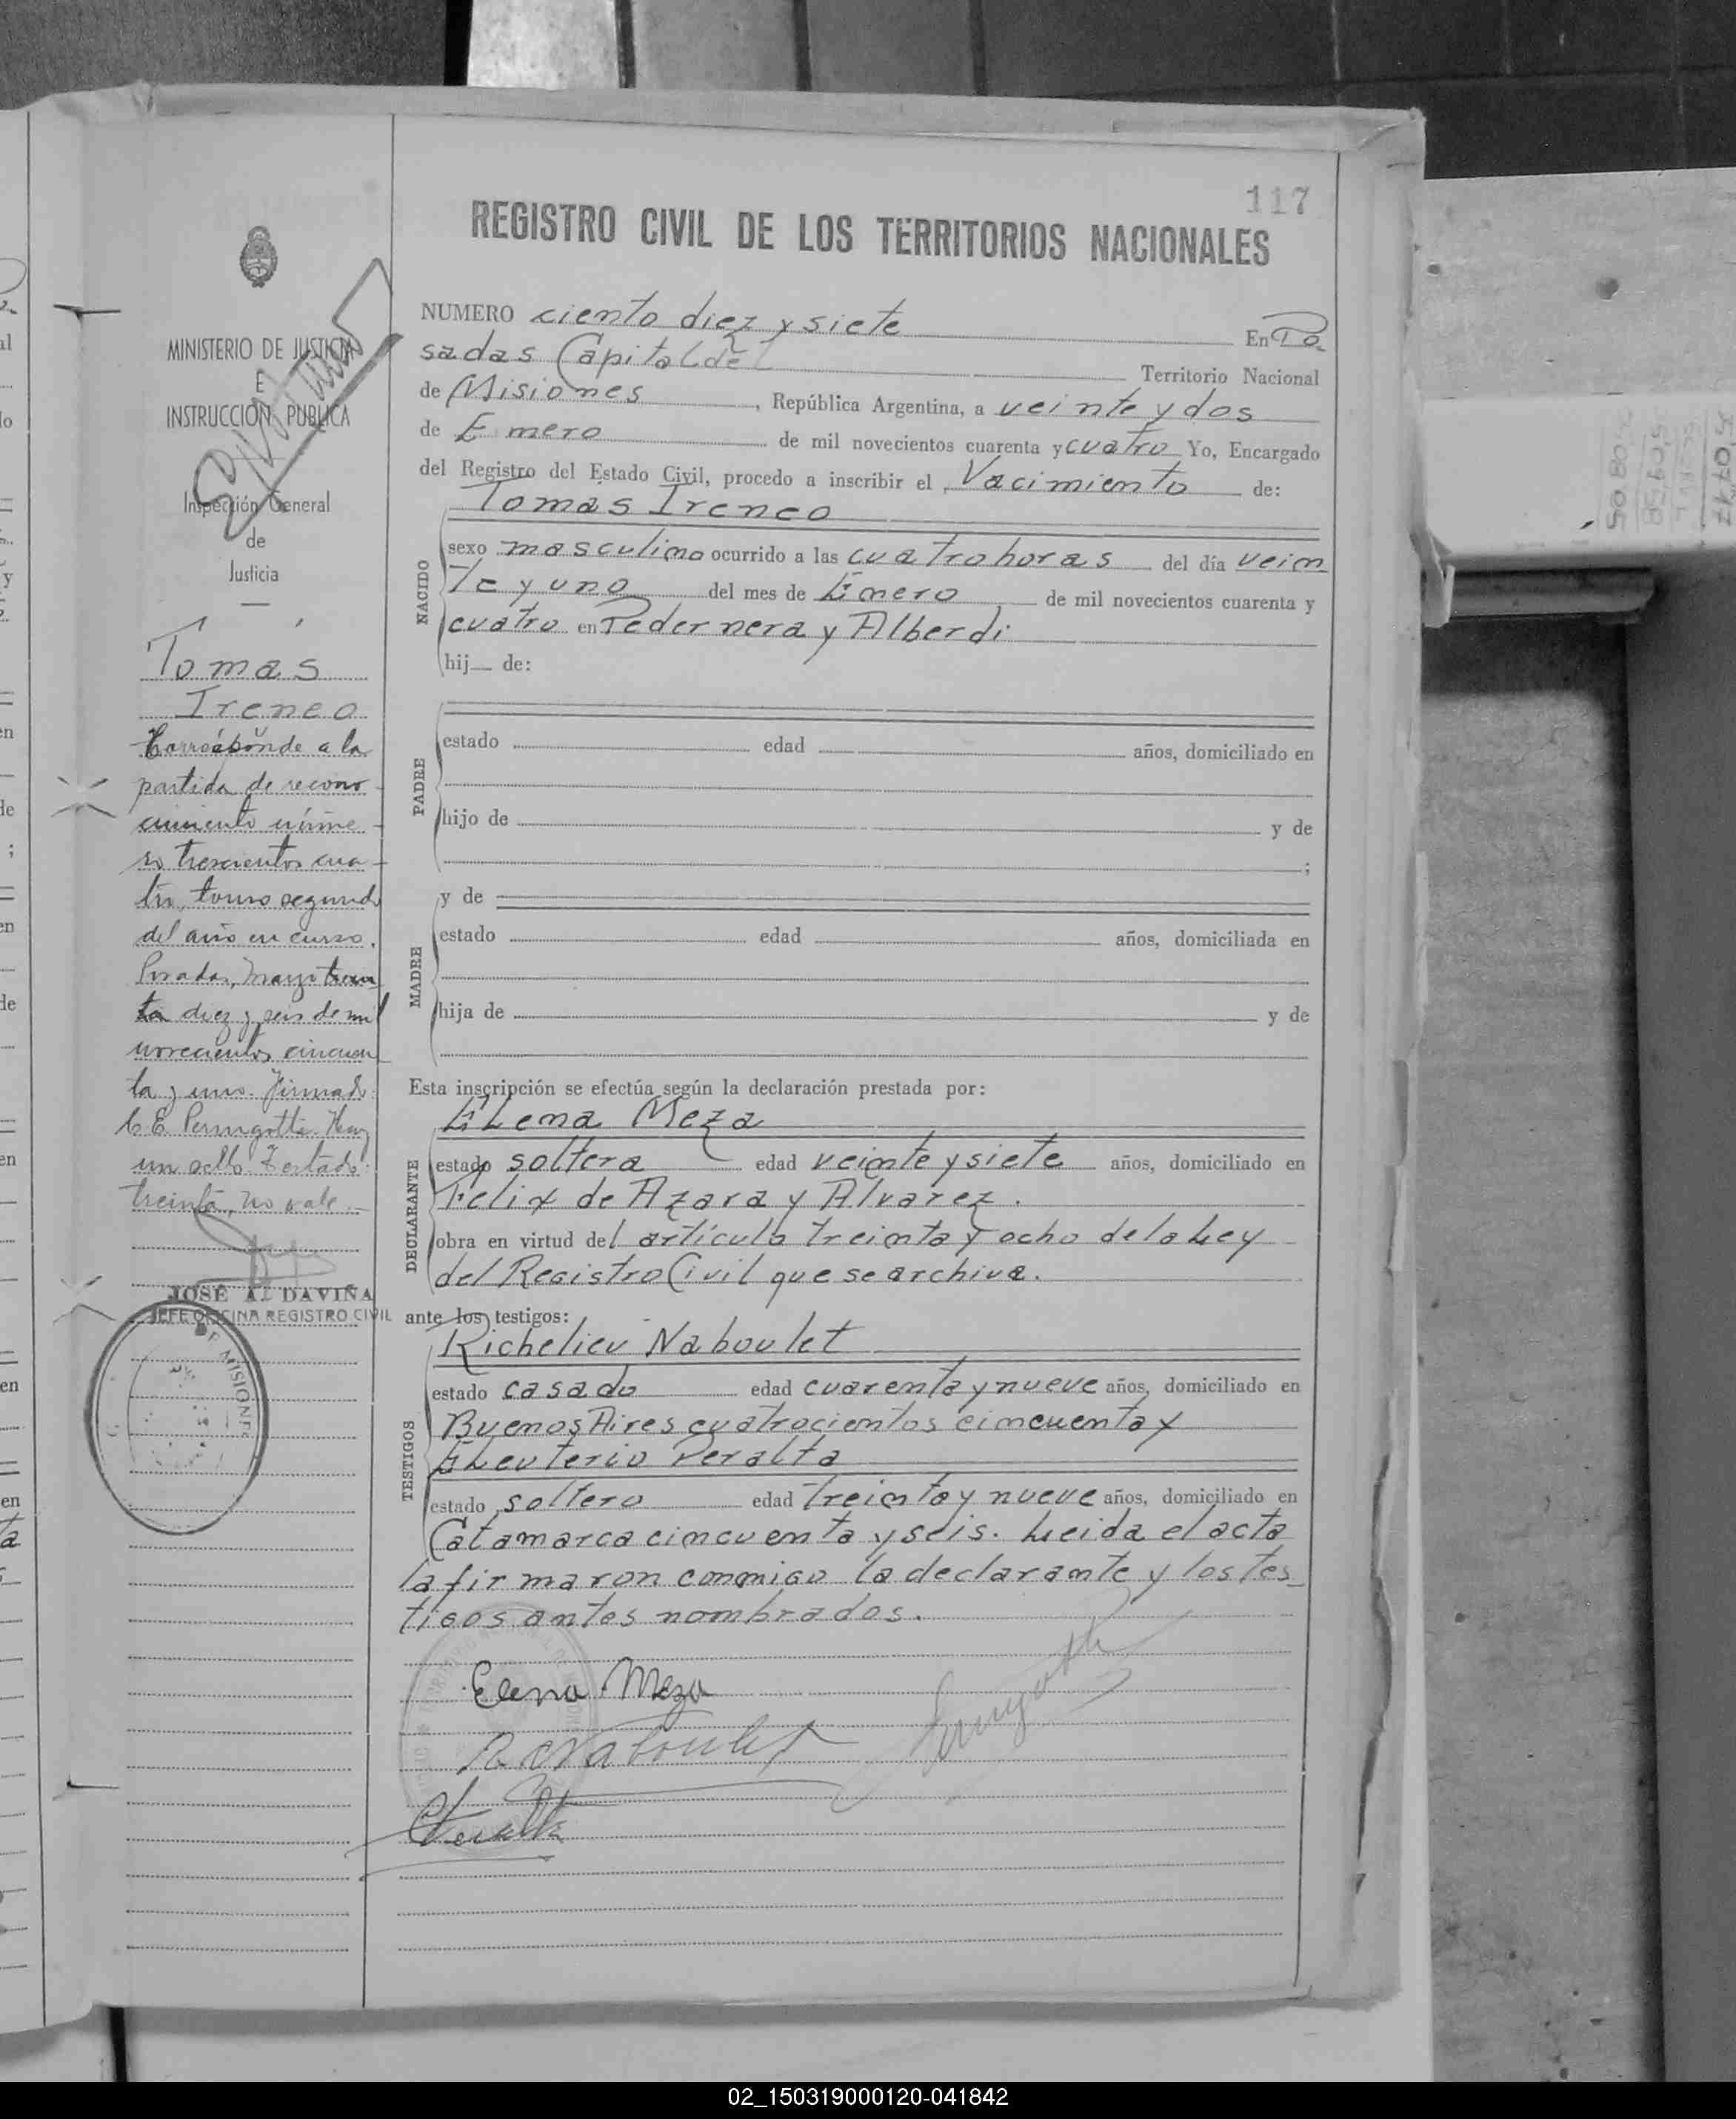 117
REGISTRO CIVIL DE LOS TERRITORIOS NACIONALES
NUMERO ciento diez y siete En Po
sadas Capital del Territorio Nacional
de Misiones, República Argentina, a veinte y dos
de Enero de mil novecientos cuarenta y cuatro Yo, Encargado
del Registro del Estado Civil, procedo a inscribir el Nacimiento de:
Tomas Ireneo
NACIDO
sexo masculino ocurrido a las cuatro horas del día vein
te y uno del mes de Enero de mil novecientos cuarenta y
cuatro en Pedernera y Alberdi
hij de:
PADRE
estado edad años, domiciliado en
hijo de y de
;
MADRE
y de
estado edad años, domiciliada en
hija de y de
Esta inscripción se efectúa según la declaración prestada por:
Elena Meza
DECLARANTE
estado soltera edad veinte y siete años, domiciliado en
Felix de Azara y Alvarez.
obra en virtud del artículo treinta y ocho de la Ley
del Registro Civil que se archiva.
ante los testigos:
Richelieu Naboulet
TESTIGOS
estado casado edad cuarenta y nueve años, domiciliado en
Buenos Aires cuatrocientos cincuenta y
Eleuterio Peralta
estado soltero edad treinta y nueve años, domiciliado en
Catamarca cincuenta y seis. Leida el acta
la firmaron conmigo la declarante y los tes
tigos antes nombrados.
Elena Meza
R Naboulet
Peralta
MINISTERIO DE JUSTICIA
E
INSTRUCCIÓN PUBLICA
Inspección General
de
Justicia
Tomás
Ireneo
Corresponde a la
partida de recono
cimiento núme-
ro trescientos cua-
tro, tomo segundo
del año en curso.
Posadas, Mayo trein
ta diez y seis de mil
novecientos cincuen
ta y uno. Firmado:
C. E. Perugotti. Hay
un sello. Testado:
treinta, no vale.-
JOSÉ A. DAVIÑA
JEFE OFICINA REGISTRO CIVIL
MISIONES
50805
02_150319000120-041842